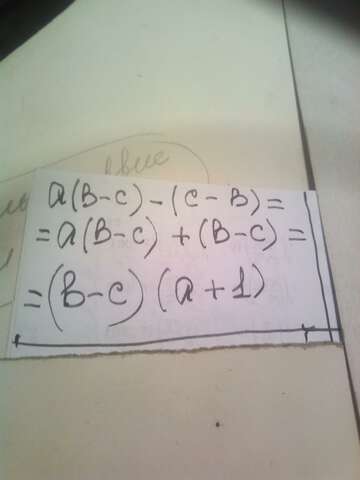 a(b-c)-(c-b)=
=a(b-c)+(b-c)=
=(b-c)(a+1)